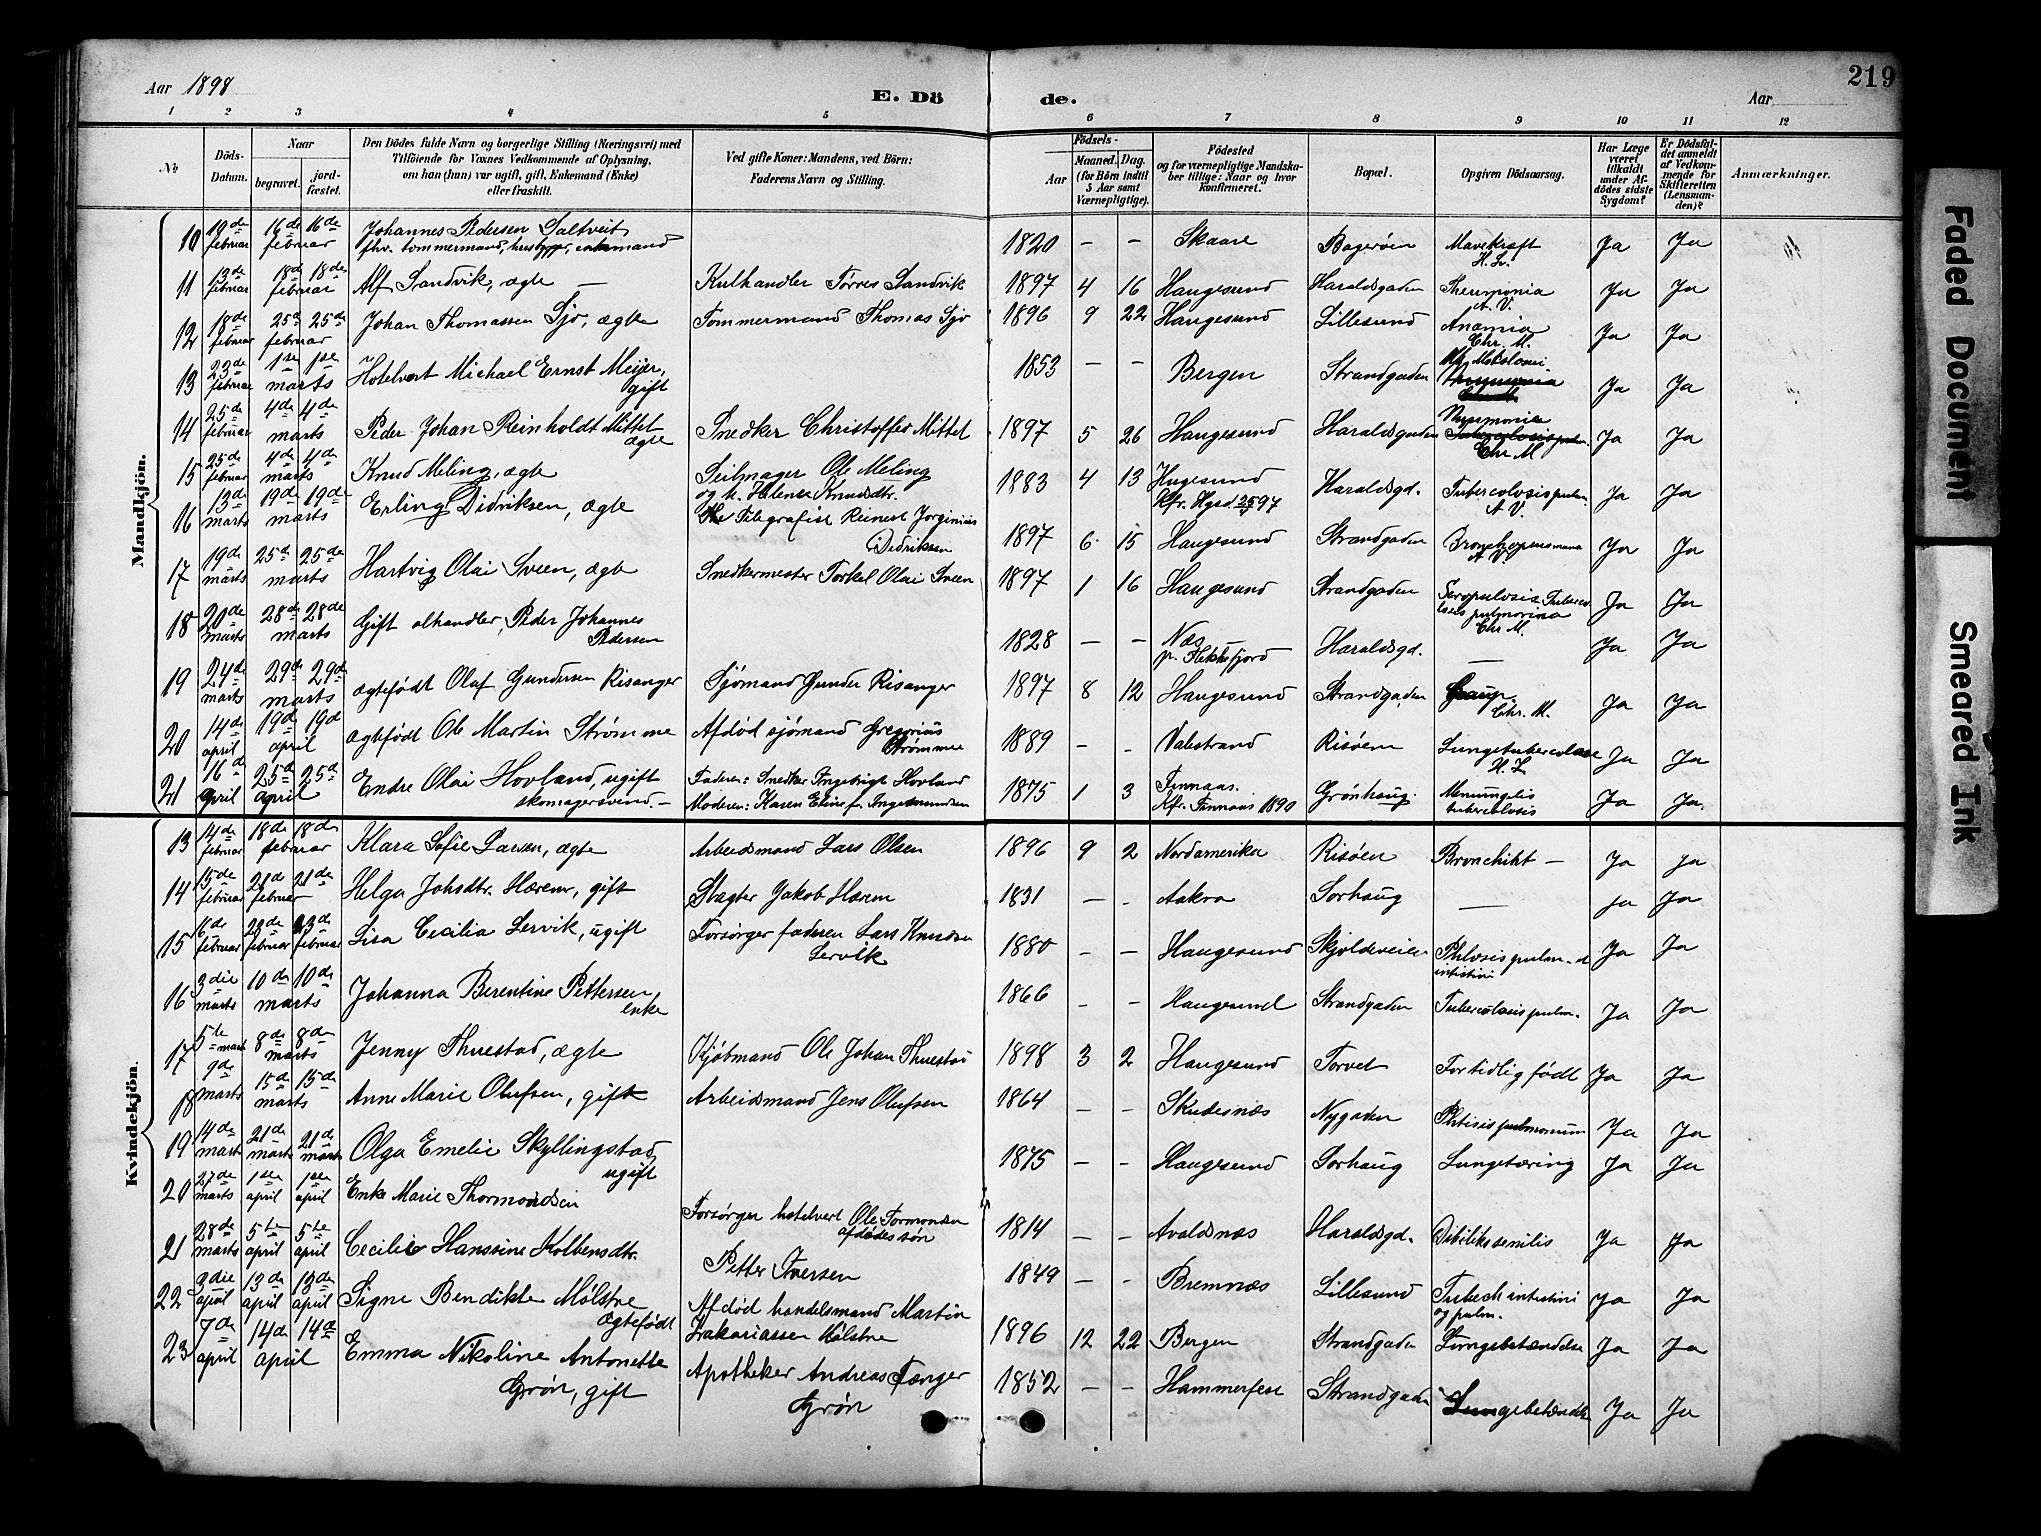 Aar 1898
E. Dö de.
Aar
219
1 2 3 4 5 6 7 8 9 10 11 12
No
Döds-Datum.
Naar
begravet. jordfæstet.
Den Dödes fulde Navn og borgerlige Stilling (Næringsvei) med Tilföiende for Voxnes Vedkommende af Oplysning, om han (hun) var ugift, gift, Enkemand (Enke) eller fraskilt.
Ved gifte Koner: Mandens, ved Börn: Faderens Navn og Stilling.
Födsels-
Aar
Maaned. Dag.
(for Börn indtil 5 Aar samt Værnepligtige).
Födested og for værnepligtige Mandskaber tillige: Naar og hvor konfirmeret.
Bopæl.
Opgiven Dödsaarsag.
Har Læge været tilkaldt under Afdödes sidste Sygdom?
Er Dödsfaldet anmeldt af Vedkommende for Skifteretten (Lensmanden)?
Anmærkninger.
Mandkjön.
10 februar 16de februar 16de Johannes Pedersen Saltveit fhv. tømmermand, enkemand 1820 – – Skaare Bagerøen Mavekræft H. L. Ja Ja
11 13de februar 18de februar 18de Alf Sandvik, ægte – Kulhandler Tørres Sandvik 1897 4 16 Haugesund Haraldsgaden A. V. Ja Ja
12 18de februar 25de februar 25de Johan Thomassen Sjo, ægte Tømmermand Thomas Sjo 1896 9 22 Haugesund Lillesund Anæmia Chr. M. Ja Ja
13 23de februar 1ste marts 1ste Hotelvert Michael Ernst Meijer, gift 1853 – – Bergen Strandgaden Ja Ja
14 25de februar 4de marts 4de Peder Johan Reinholdt Mittet ægte Snedker Christoffer Mittet 1897 5 26 Haugesund Haraldsgaden Chr. M Ja Ja
15 25de februar 4de marts 4de Knud Meling, ægte Seilmager Ole Meling og h. Helene Knudsdtr. 1883 4 13 Hugesund Kfr. Hgsd. 97 Haraldsgd. Tubercolosis pulm. A. V. Ja Ja
16 13de marts 19de marts 19de Erling Didriksen, ægte Telegrafist Reinert Jorginius Didriksen 1897 6 15 Haugesund Strandgaden A. V. Ja Ja
17 19de marts 25de marts 25de Hartvig Olai Sveen, ægte Snedkermester Torkel Olai Sveen 1897 1 16 Haugesund Strandgaden Chr. M. Ja Ja
18 20de marts 28de marts 28de Gift ølhandler, Peder Johannes Pedersen 1828 – – Næs p. Flekkefjord Haraldsgd. – Ja Ja
19 24de marts 29de marts 29de ægtefødt Olaf Gundersen Risanger Sjømand Gunder Risanger 1897 8 12 Haugesund Strandgaden Chr. M. Ja Ja
20 14de april 19de april 19de ægtefødt Ole Martin Strømme Afdød sjømand Gregorius Strømme 1889 – – Valestrand Risøen Lungetuberculose H. L. Ja Ja
21 16de april 25de april 25de Endre Olai Hovland, ugift skomagersvend. – Faderen: Snedker Ingebrigt Hovland Moderen: Karen Eline f. Ingemundsen 1875 1 3 Finnaas. Kfr. Finnaas 1890 Grønhaug. tuberculosis Ja Ja.
Kvindekjön.
13 14de februar 18de februar 18de Klara Sofie Larsen, ægte Arbeidsmand Lars Olsen 1896 9 2 Nordamerika Risøen Bronchikt – Ja Ja
14 15de februar 21de februar 21de Helga Johsdtr. Hærem, gift Slagter Jakob Hærem 1831 – – Aakra Sørhaug – Ja Ja
15 16de februar 23de februar 23de februar Lisa Cecilia Lervik, ugift Forsørger faderen Lars Knudsen Lervik 1880 – – Haugesund Skjoldeveien Ja Ja
16 3die marts 10de marts 10de Johanna Berentine Pettersen, enke 1866 – – Haugesund Strandgaden Tubercolosis pulm. Ja Ja
17 5te marts 8de marts 8de Jenny Thuestad, ægte Kjøbmand Ole Johan Thuestad 1898 3 2 Haugesund Torvet For tidlig født Ja Ja
18 9de marts 15de marts 15de Anne Marie Olufsen, gift Arbeidsmand Jens Olufsen 1864 – – Skudesnæs Nygaden Phtisis pulmonum Ja Ja
19 14de marts 21de marts 21de marts Olga Emelie Skyllingstad, ugift 1875 – – Haugesund Sørhaug Lungetæring Ja Ja
20 27de marts 1ste april 1ste april Enke Marie Thormondsen Forsørger hotelvert Ole Tormondsen afdødes søn 1814 – – Avaldsnæs Haraldsgd. Ja Ja
21 28de marts 5te april 5te april Cecilie Hanssine Kolbensdtr. Petter Iversen 1849 – – Bremnæs Lillesund og pulm. Ja Ja
22 3die april 13de april 13de april Signe Bendikte Mølstre ægtefødt Afdød handelsmand Martin Zakariassen Mølstre 1896 12 22 Bergen Strandgaden Lungebetændelse Ja Ja
23 7de april 14de april 14de Emma Nikoline Antonette Grøn, gift Apotheker Andreas Fanger Grøn 1852 – – Hammerfest Strandgaden Lungebetændelse Ja Ja
Faded Document
Smeared Ink